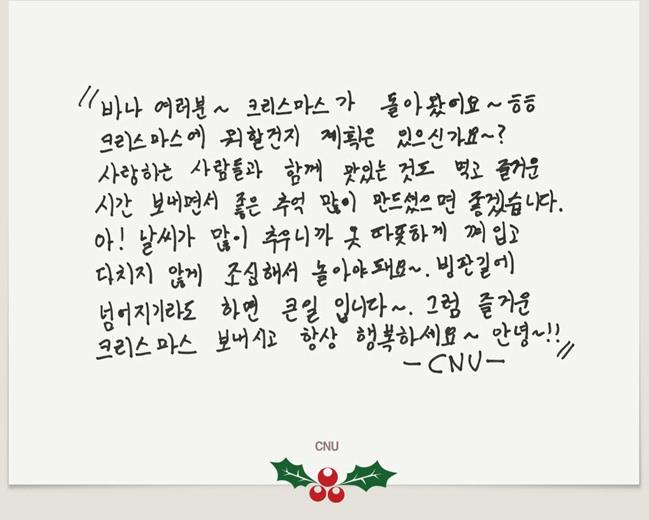 "바나 여러분~ 크리스마스가 돌아왔어요~ㅎㅎ
크리스마스에 뭐할건지 계획은 있으신가요~?
사랑하는 사람들과 함께 맛있는 것도 먹고 즐거운
시간 보내면서 좋은 추억 많이 만드셨으면 좋겠습니다.
아! 날씨가 많이 추우니까 옷 따뜻하게 껴입고
다치지 않게 조심해서 놀아야돼요~. 빙판길에
넘어지기라도 하면 큰일 입니다~. 그럼 즐거운
크리스마스 보내시고 항상 행복하세요~ 안녕~!!"
-CNU-
CNU